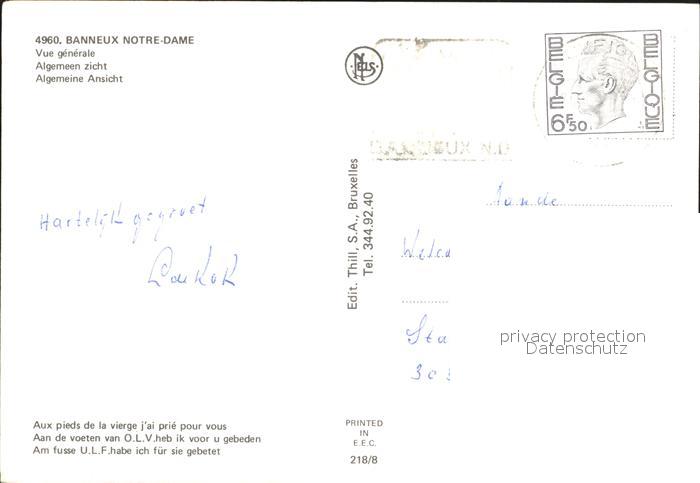 4960. BANNEUX NOTRE-DAME
Vue générale
Algemeen zicht
Algemeine Ansicht
NELS
BANNEUX N.D
BELGIE
BELGIQUE
6F50
Hartelijk gegroet
Edit. Thill, S.A., Bruxelles
Tel. 344.92.40
Sta
privacy protection
Datenschutz
Aux pieds de la vierge j'ai prié pour vous
Aan de voeten van O.L.V.heb ik voor u gebeden
Am fusse U.L.F.habe ich für sie gebetet
PRINTED
IN
E.E.C.
218/8